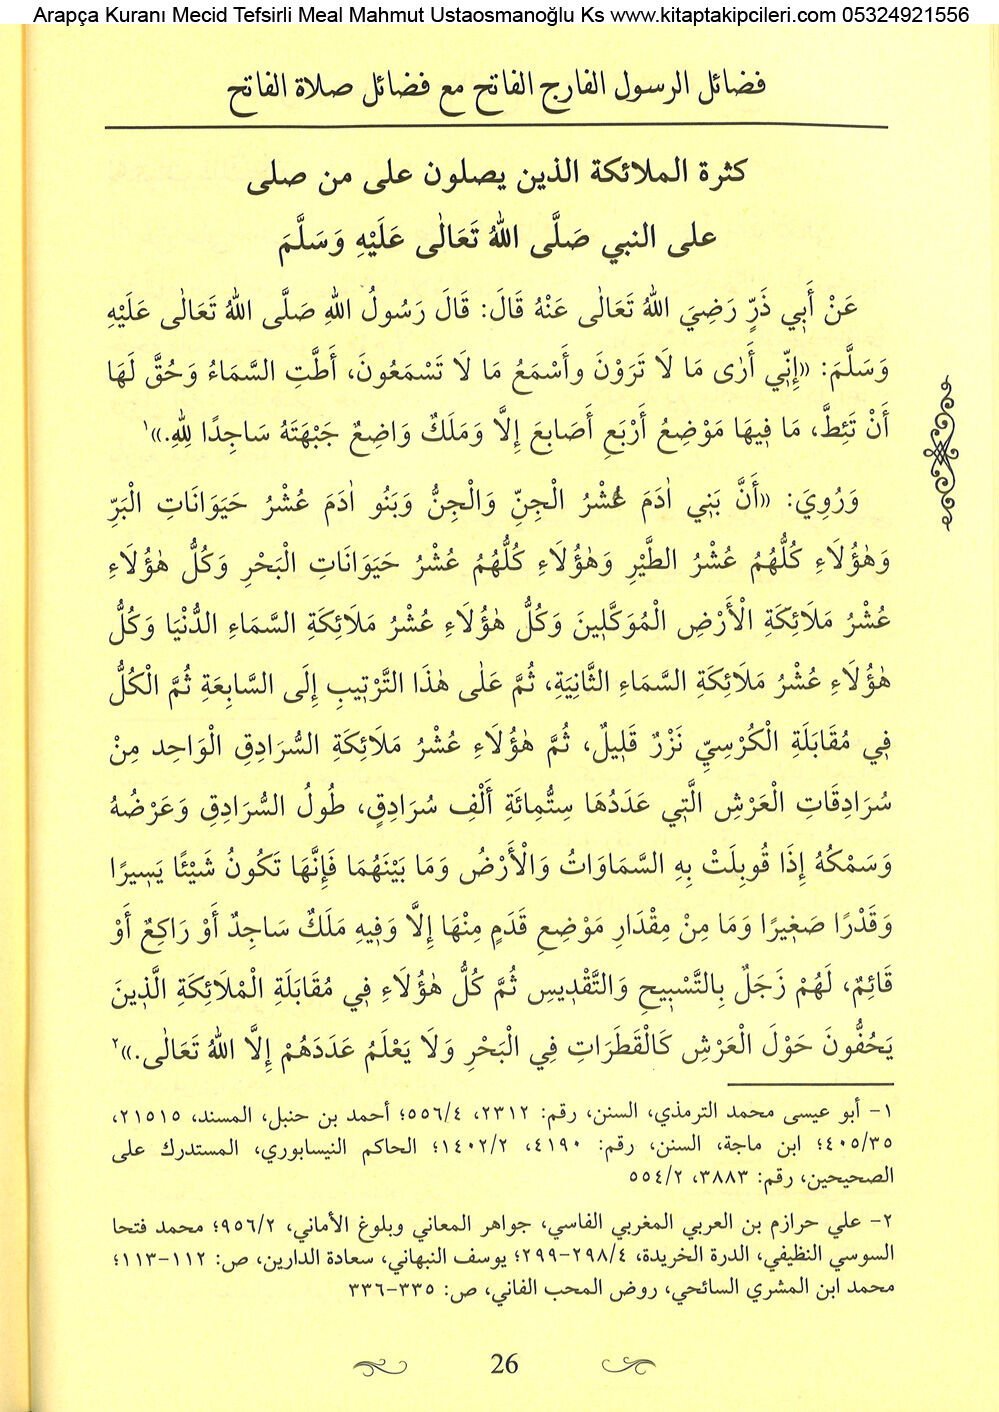 Arapça Kuranı Mecid Tefsirli Meal Mahmut Ustaosmanoğlu Ks www.kitaptakipcileri.com 05324921556
فضائل الرسول الفارج الفاتح مع فضائل صلاة الفاتح
كثرة الملائكة الذين يصلون على من صلى
على النبي صَلَّى اللهُ تَعَالٰى عَلَيْهِ وَسَلَّمَ
عَنْ أَبِي ذَرٍّ رَضِيَ اللهُ تَعَالٰى عَنْهُ قَالَ: قَالَ رَسُولُ اللهِ صَلَّى اللهُ تَعَالٰى عَلَيْهِ
وَسَلَّمَ: «إِنِّي أَرٰى مَا لَا تَرَوْنَ وأَسْمَعُ مَا لَا تَسْمَعُونَ، أَطَّتِ السَّمَاءُ وَحُقَّ لَهَا
أَنْ تَئِطَّ، مَا فِيهَا مَوْضِعُ أَرْبَعِ أَصَابِعَ إِلَّا وَمَلَكٌ وَاضِعٌ جَبْهَتَهُ سَاجِدًا لِلهِ.»١
وَرُوِيَ: «أَنَّ بَنِي اٰدَمَ عُشْرُ الْجِنِّ وَالْجِنُّ وَبَنُو اٰدَمَ عُشْرُ حَيَوَانَاتِ الْبَرِّ
وَهٰؤُلَاءِ كُلُّهُمُ عُشْرُ الطَّيْرِ وَهٰؤُلَاءِ كُلُّهُمُ عُشْرُ حَيَوَانَاتِ الْبَحْرِ وَكُلُّ هٰؤُلَاءِ
عُشْرُ مَلَائِكَةِ الْأَرْضِ الْمُوَكَّلِينَ وَكُلُّ هٰؤُلَاءِ عُشْرُ مَلَائِكَةِ السَّمَاءِ الدُّنْيَا وَكُلُّ
هٰؤُلَاءِ عُشْرُ مَلَائِكَةِ السَّمَاءِ الثَّانِيَةِ، ثُمَّ عَلٰى هٰذَا التَّرْتِيبِ إِلَى السَّابِعَةِ ثُمَّ الْكُلُّ
فِي مُقَابَلَةِ الْكُرْسِيِّ نَزْرٌ قَلِيلٌ، ثُمَّ هٰؤُلَاءِ عُشْرُ مَلَائِكَةِ السُّرَادِقِ الْوَاحِدِ مِنْ
سُرَادِقَاتِ الْعَرْشِ الَّتِي عَدَدُهَا سِتُّمِائَةِ أَلْفِ سُرَادِقٍ، طُولُ السُّرَادِقِ وَعَرْضُهُ
وَسَمْكُهُ إِذَا قُوبِلَتْ بِهِ السَّمَاوَاتُ وَالْأَرْضُ وَمَا بَيْنَهُمَا فَإِنَّهَا تَكُونُ شَيْئًا يَسِيرًا
وَقَدْرًا صَغِيرًا وَمَا مِنْ مِقْدَارِ مَوْضِعِ قَدَمٍ مِنْهَا إِلَّا وَفِيهِ مَلَكٌ سَاجِدٌ أَوْ رَاكِعٌ أَوْ
قَائِمٌ، لَهُمْ زَجَلٌ بِالتَّسْبِيحِ وَالتَّقْدِيسِ ثُمَّ كُلُّ هٰؤُلَاءِ فِي مُقَابَلَةِ الْمَلَائِكَةِ الَّذِينَ
يَحُفُّونَ حَوْلَ الْعَرْشِ كَالْقَطَرَاتِ فِي الْبَحْرِ وَلَا يَعْلَمُ عَدَدَهُمْ إِلَّا اللهُ تَعَالٰى.»٢
١- أبو عيسى محمد الترمذي، السنن، رقم: ٢٣١٢، ٥٥٦/٤؛ أحمد بن حنبل، المسند، ٢١٥١٥،
٤٠٥/٣٥؛ ابن ماجة، السنن، رقم: ٤١٩٠، ١٤٠٢/٢؛ الحاكم النيسابوري، المستدرك على
الصحيحين، رقم: ٣٨٨٣، ٥٥٤/٢
٢- علي حرازم بن العربي المغربي الفاسي، جواهر المعاني وبلوغ الأماني، ٩٥٦/٢؛ محمد فتحا
السوسي النظيفي، الدرة الخريدة، ٢٩٨/٤-٢٩٩؛ يوسف النبهاني، سعادة الدارين، ص: ١١٢-١١٣؛
محمد ابن المشري السائحي، روض المحب الفاني، ص: ٣٣٥-٣٣٦
26